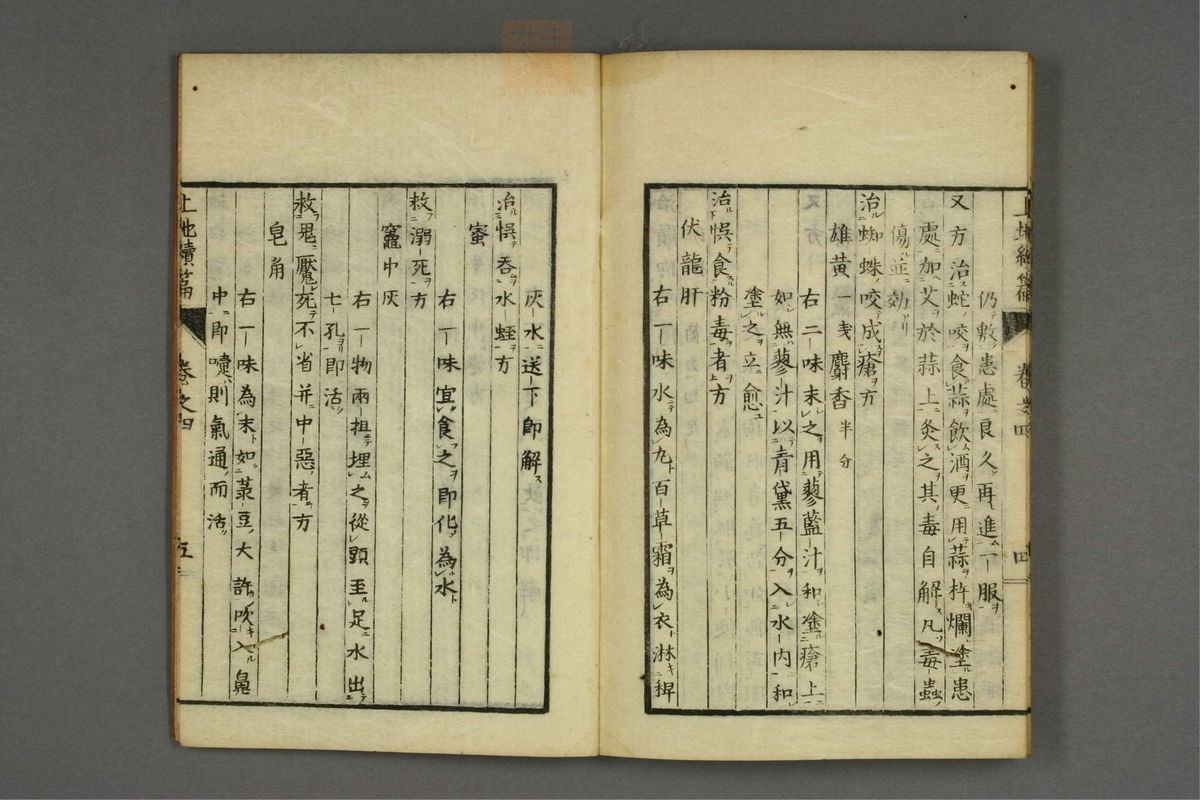 仍敷患處良久再進一服
又方治蛇咬食蒜飲酒更用蒜杵爛塗患
處加艾於蒜上灸之其毒自解凡毒蟲
傷並効
治蜘蛛咬成瘡方
雄黃一戔麝香半分
右二味末之用蓼藍汁和塗瘡上
如無蓼汁以青黛五分入水內和
塗之立愈
治悞食粉毒者方
伏龍肝
右一味水為丸百草霜為衣淋稈
灰水送下即解
治悞吞水蛭方
蜜
右一味宜食之即化為水
救溺死方
竈中灰
右一物兩担埋之從頭至足水出
七孔即活
救鬼魘死不省并中惡者方
皂角
右一味為末如菉豆大許吹入鼻
中即嚏則氣通而活
上池續篇 卷之四 五